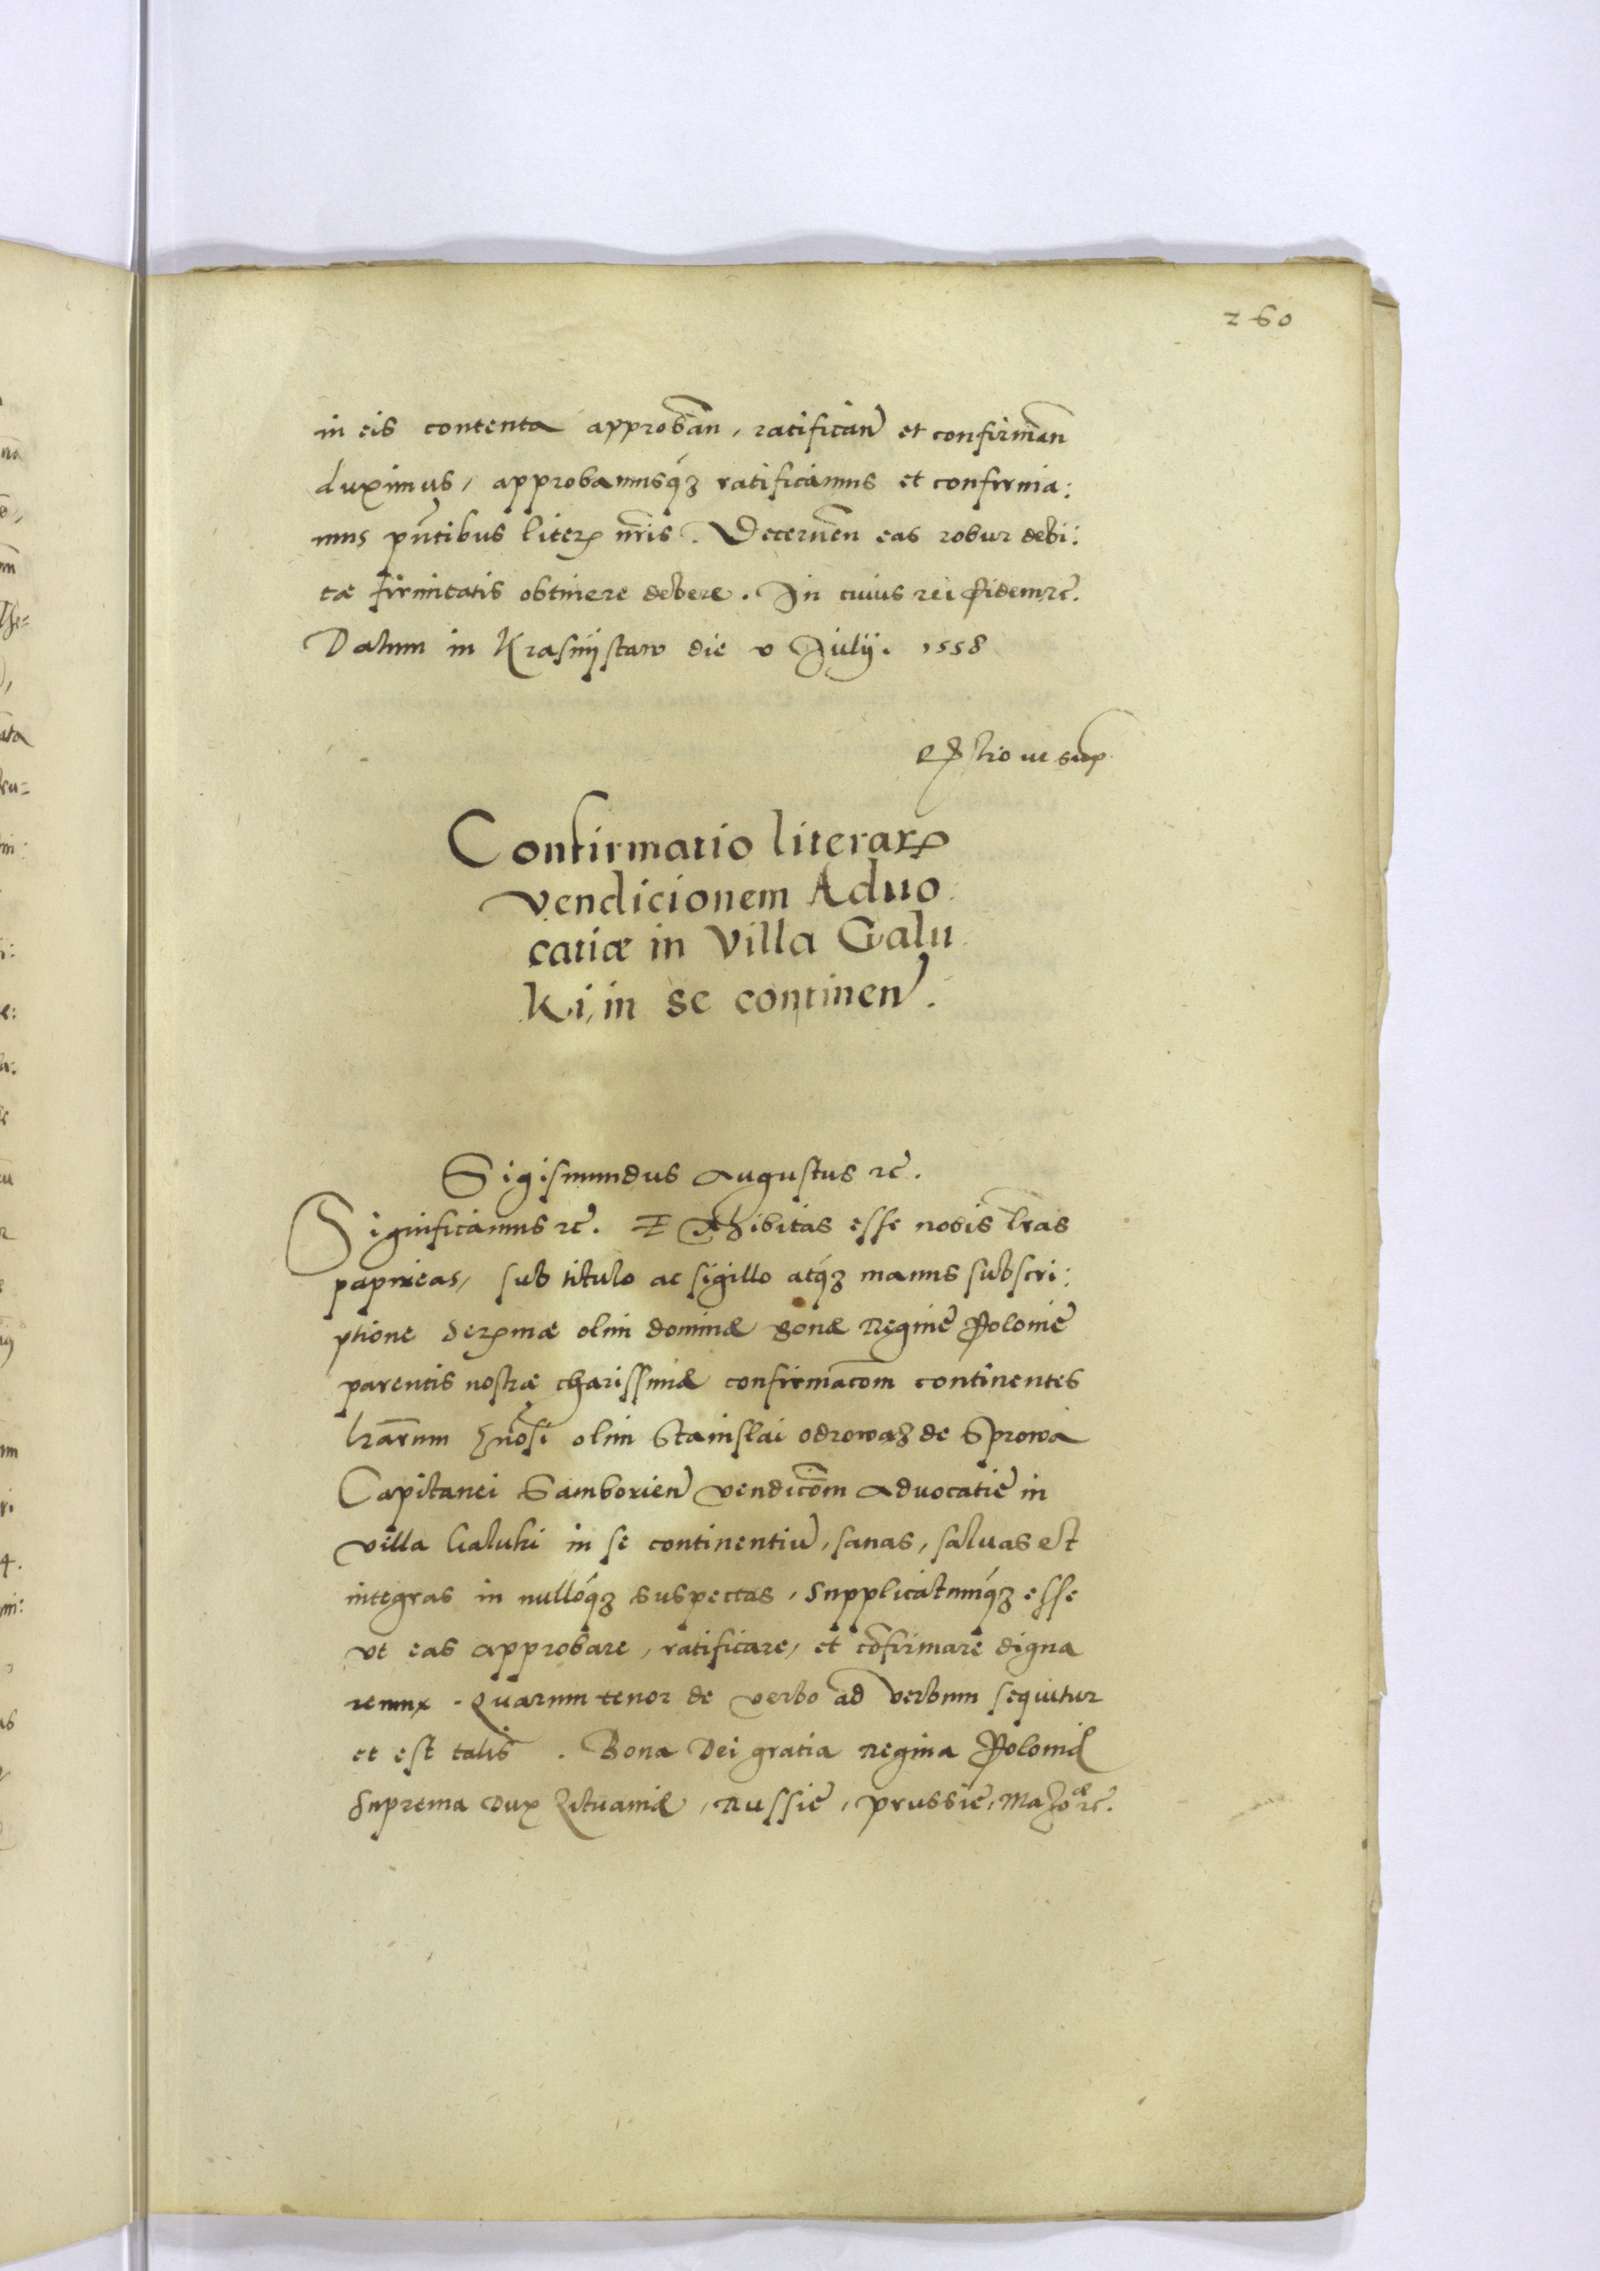 260
in eis contenta approban, ratifican et confirman
duximus, approbamusq́ꝫ ratificamus et confirma:
mus pñtibus literꝝ nr̃is. Decernen eas robur debi:
tæ firmitatis obtinere debere. In cuius rei fidem ꝛc̃.
Datum in Krasnijstaw die v Julij. 1558
ut sup
Confirmatio literarꝝ
vendicionem Aduo
catiæ in villa Galu
ki, in se continen.
Sigismundus Augustus ꝛc̃.
Significamus ꝛc̃. Exhibitas esse nobis lr̃as
papireas, sub titulo ac sigillo atq́ꝫ manus subscri:
ptione Serꝝmæ olim dominæ Bonæ Reginẽ Polonie
parentis nostræ charissimæ confirmac̃om continentes
lr̃arum gñosi olim Stanislai Odrowaz de Sprowa
Capitanei Samborien vendic̃om Aduocatie in
villa Galuki in se continentiũ, sanas, saluas et
integras in nulloq́ꝫ suspectas, Supplicatumq́ꝫ esse
vt eas approbare, ratificare, et cõfirmare digna
remur. Quarum tenor de verbo ad verbum sequitur
et est talis. Bona Dei gratia Regina Poloniæ
Suprema Dux Lituaniæ, Russie, Prussie, Mazoꝛc̃.